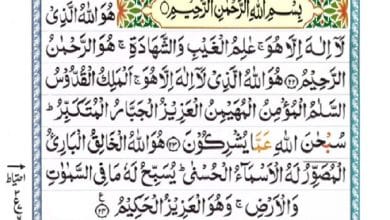 بِسْمِ اللّٰهِ الرَّحْمٰنِ الرَّحِیْمِ
هُوَ اللّٰهُ الَّذِیْ
لَاۤ اِلٰهَ اِلَّا هُوَ ۚ عٰلِمُ الْغَیْبِ وَالشَّهَادَةِ ۚ هُوَ الرَّحْمٰنُ
الرَّحِیْمُ ﴿۲۲﴾ هُوَ اللّٰهُ الَّذِیْ لَاۤ اِلٰهَ اِلَّا هُوَ ۚ اَلْمَلِكُ الْقُدُّوْسُ
السَّلٰمُ الْمُؤْمِنُ الْمُهَیْمِنُ الْعَزِیْزُ الْجَبَّارُ الْمُتَكَبِّرُ ؕ
سُبْحٰنَ اللّٰهِ عَمَّا یُشْرِكُوْنَ ﴿۲۳﴾ هُوَ اللّٰهُ الْخَالِقُ الْبَارِئُ
الْمُصَوِّرُ لَهُ الْاَسْمَآءُ الْحُسْنٰی ؕ یُسَبِّحُ لَهٗ مَا فِی السَّمٰوٰتِ
وَالْاَرْضِ ۚ وَهُوَ الْعَزِیْزُ الْحَكِیْمُ ﴿۲۴﴾
احتیاط